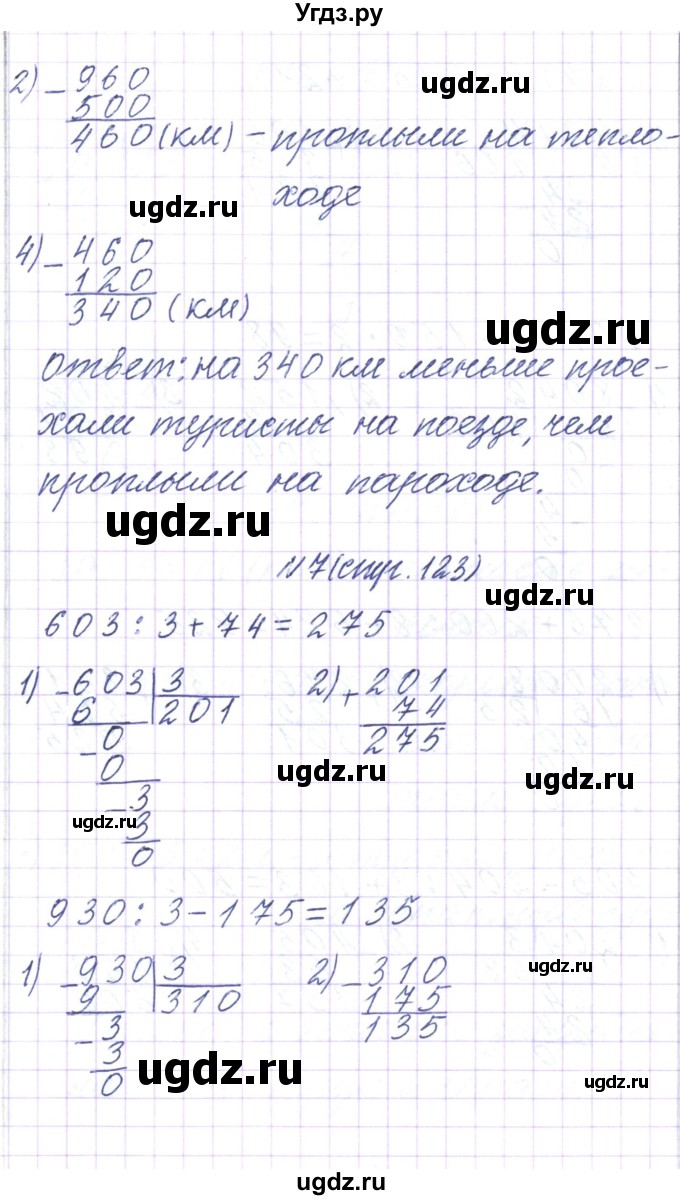 Угдз.ру
2) - 960
500
460 (км) - проплыли на тепло-
ходе
ugdz.ru
ugdz.ru
4) - 460
120
340 (км)
ugdz.ru
Ответ: на 340 км меньше прое-
хали туристы на поезде, чем
проплыли на пароходе.
ugdz.ru
N7 (стр. 123)
ugdz.ru
603 : 3 + 74 = 275
1) - 603 | 3
6 201
- 0
0
- 3
3
0
2) + 201
74
275
ugdz.ru
ugdz.ru
ugdz.ru
930 : 3 - 175 = 135
1) - 930 | 3
9 310
- 3
3
0
2) - 310
175
135
ugdz.ru
ugdz.ru
ugdz.ru
ugdz.ru